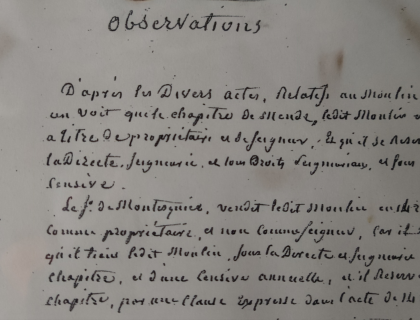 Observations
D'après les Divers actes, Relatifs au Moulin
on voit que le chapitre de Mende, ledit Moulin
a titre de propriétaire et de seigneur. Et qu'il se Reser
la Directe, seigneurie, et tous Droits seigneuriaux, et sous
Censive.
Le Sr. de vendit ledit Moulin en
comme propriétaire, et non comme seigneur, car il
qu'il tient ledit Moulin, sous la Directe et seigneurie
chapitre, et d'une Censive annuelle, et il Reserv
chapitre, par une Clause Expresse dans l'acte de 14